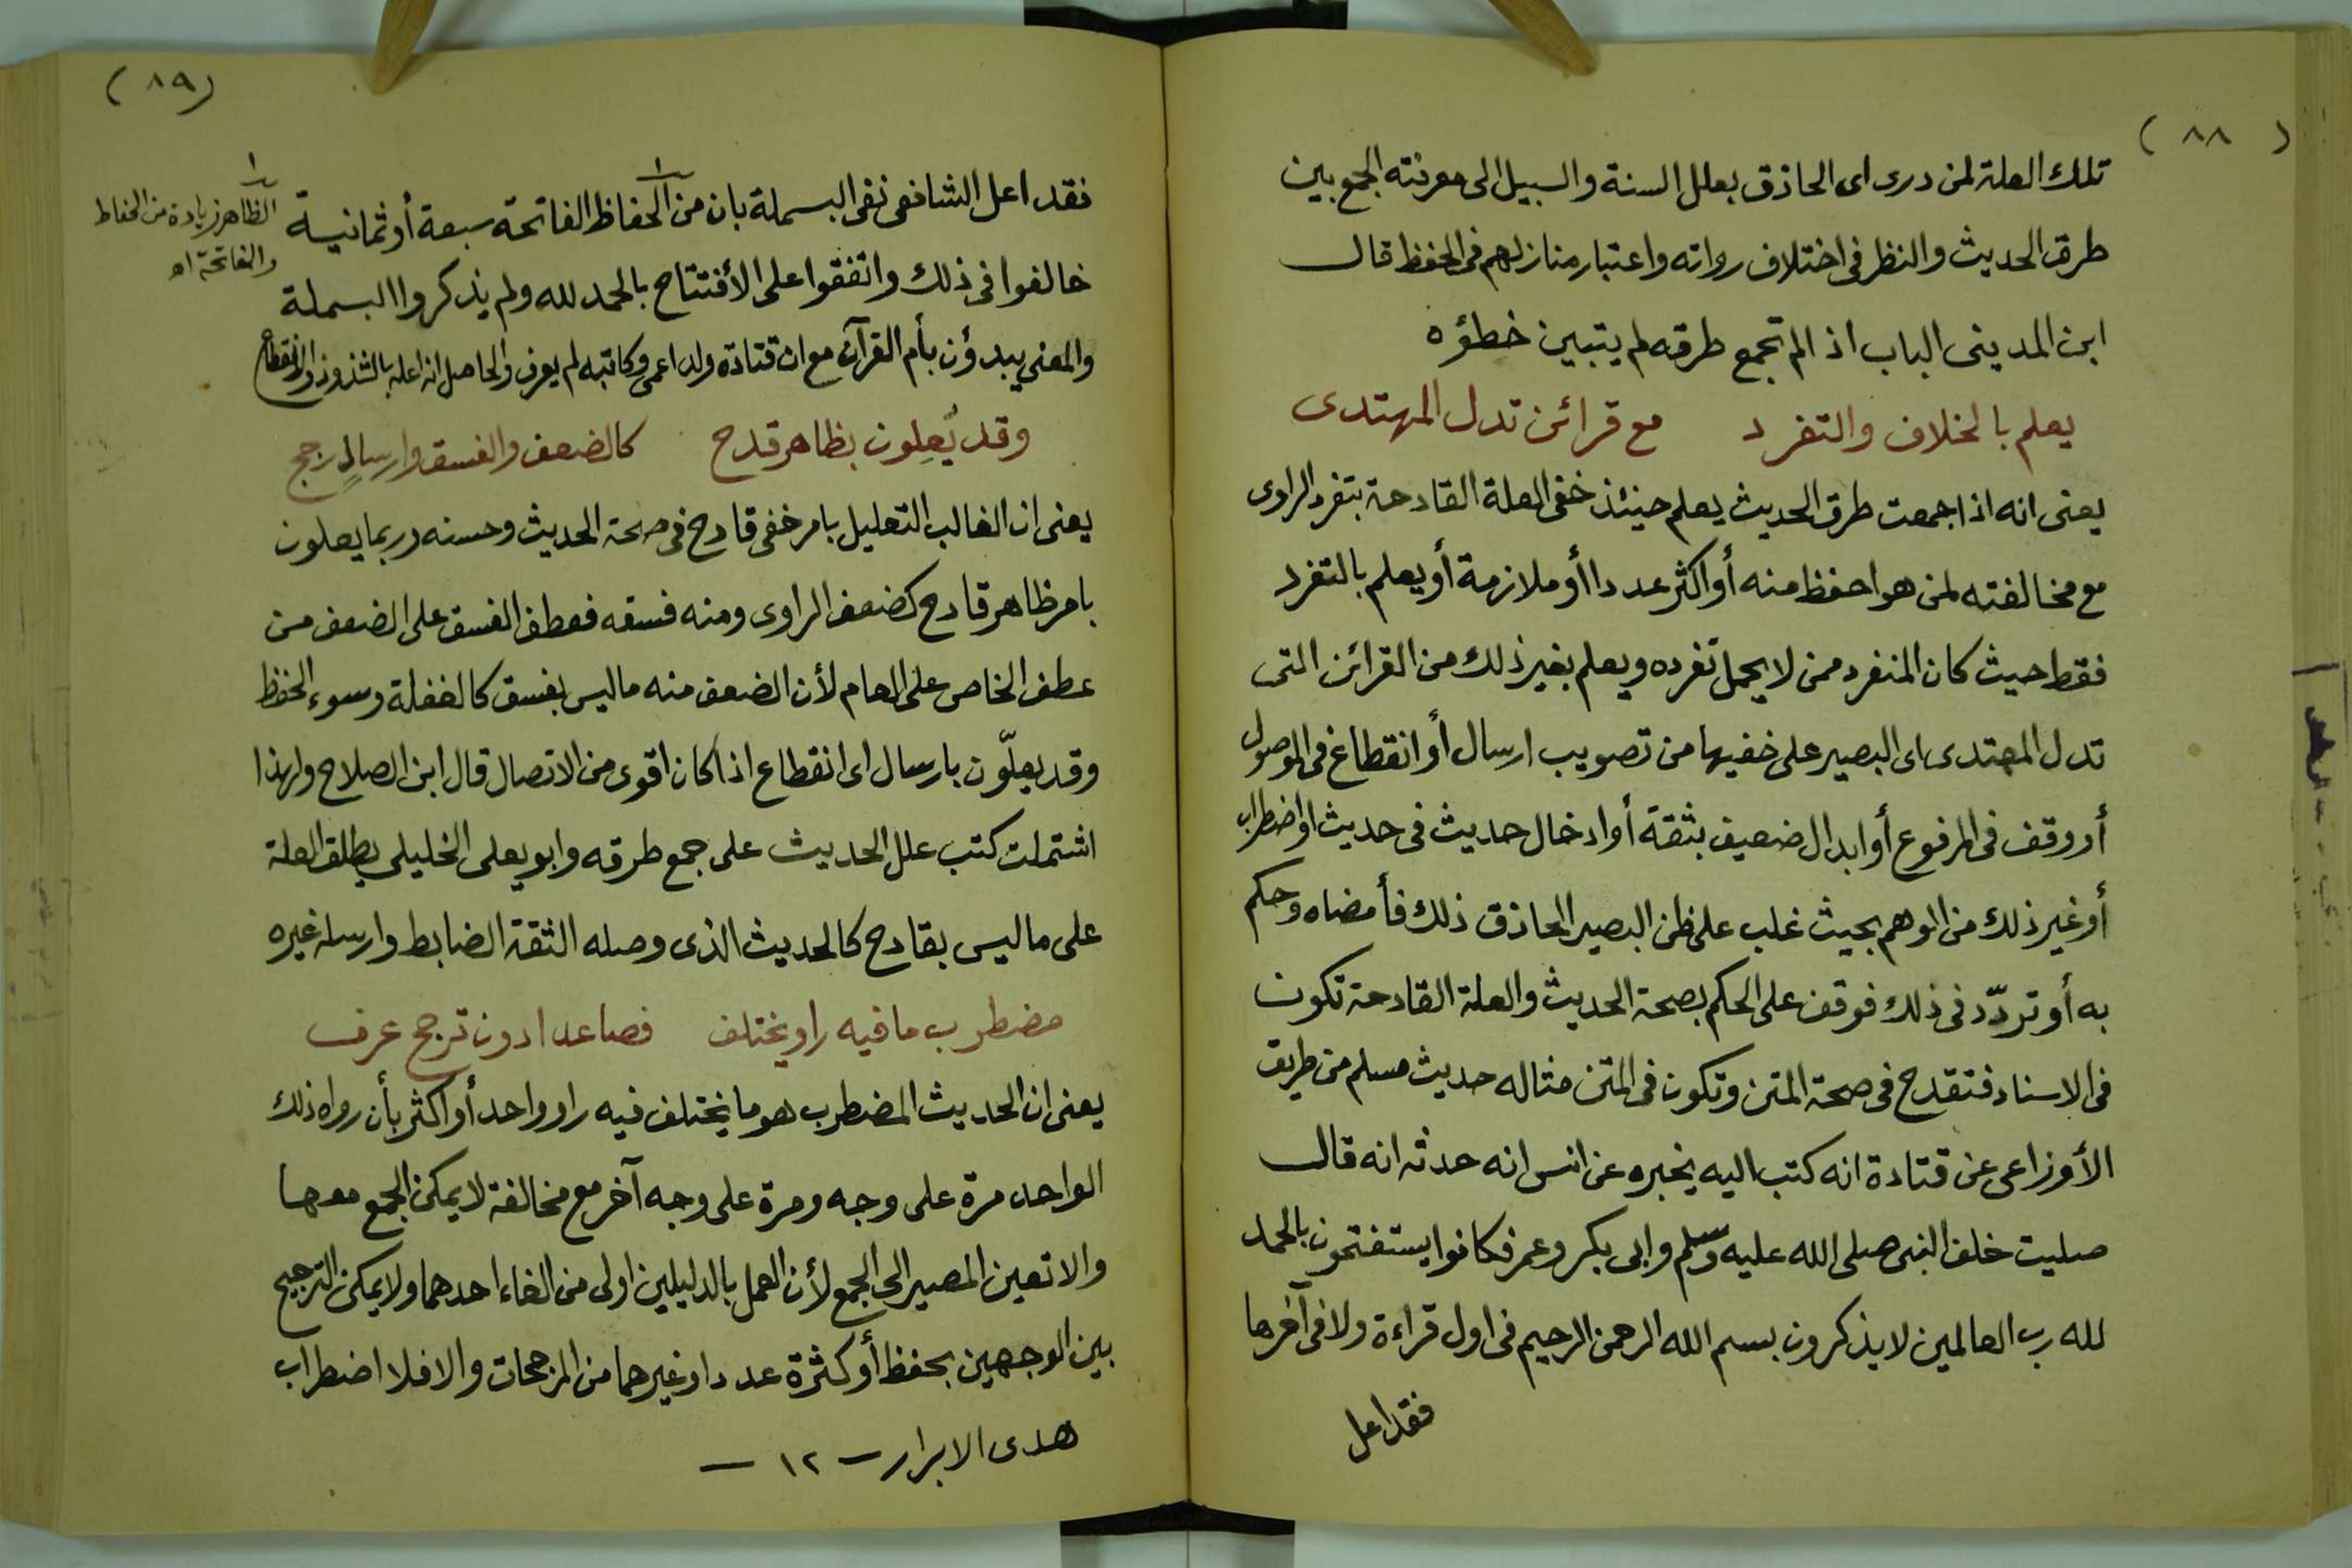 ( ٨٨ )
تلك العلة لمن درى اى الحاذق بعلل السنة والسبيل الى معرفته الجمع بين
طرق الحديث والنظر فى اختلاف رواته واعتبار منازلهم فى الحفظ قال
ابن المدينى الباب اذا لم تجمع طرقه لم يتبين خطؤه
يعلم بالخلاف والتفرد مع قرائن تدل المهتدى
يعنى انه اذا جمعت طرق الحديث يعلم حينئذ خفى العلة القادحة بتفرد الراوى
مع مخالفته لمن هو احفظ منه أو اكثر عددا أو ملازمة أو يعلم بالتفرد
فقط حيث كان المنفرد ممن لا يحمل تفرده ويعلم بغير ذلك من القرائن التى
تدل المهتدى اى البصير على خفيها من تصويب ارسال أو انقطاع فى الموصول
أو وقف فى المرفوع أو ابدال ضعيف بثقة أو ادخال حديث فى حديث او اضطراب
أو غير ذلك من الوهم بحيث غلب على ظن البصير الحاذق ذلك فأمضاه وحكم
به أو تردّد فى ذلك فوقف على الحكم بصحة الحديث والعلة القادحة تكون
فى الاسناد فتقدح فى صحة المتن وتكون فى المتن مثاله حديث مسلم من طريق
الأوزاعى عن قتادة انه كتب اليه يخبره عن انس انه حدثه انه قال
صليت خلف النبى صلى الله عليه وسلم وابى بكر وعمر فكانوا يستفتحون بالحمد
لله رب العالمين لا يذكرون بسم الله الرحمن الرحيم فى اول قراءة ولا فى آخرها
فقد اعل
( ٨٩ )
فقد اعل الشافعى نفى البسملة بان من الحفاظ الفاتحة سبعة أو ثمانية
الظاهر زيادة من الحفاظ
والفاتحة اه
خالفوا فى ذلك واتفقوا على الأفتتاح بالحمد لله ولم يذكروا البسملة
والمعنى يبدؤن بأم القرآن مع ان قتادة ولد اعمى وكاتبه لم يعرف والحاصل انه اعله بالشذوذ والانقطاع
وقد يُعِلون بظاهر قدح كالضعف والفسق وارسالٍ رجح
يعنى ان الغالب التعليل بامر خفى قادح فى صحة الحديث وحسنه وربما يعلون
بامر ظاهر قادح كضعف الراوى ومنه فسقه فعطف الفسق على الضعف من
عطف الخاص على العام لأن الضعف منه ما ليس بفسق كالغفلة وسوء الحفظ
وقد يعلّون بارسال اى انقطاع اذا كان اقوى من الاتصال قال ابن الصلاح ولهذا
اشتملت كتب علل الحديث على جمع طرقه وابو يعلى الخليلى يطلق العلة
على ما ليس بقادح كالحديث الذى وصله الثقة الضابط وارسله غيره
مضطرب ما فيه راو يختلف فصاعدا دون ترجح عرف
يعنى ان الحديث المضطرب هو ما يختلف فيه راو واحد أو اكثر بأن رواه ذلك
الواحد مرة على وجه ومرة على وجه آخر مع مخالفة لا يمكن الجمع معها
والا تعين المصير الى الجمع لأن العمل بالدليلين اولى من الغاء احدهما ولا يمكن الترجيح
بين الوجهين بحفظ أو كثرة عدد او غيرهما من المرجحات والا فلا اضطراب
هدى الابرار - ١٢ -